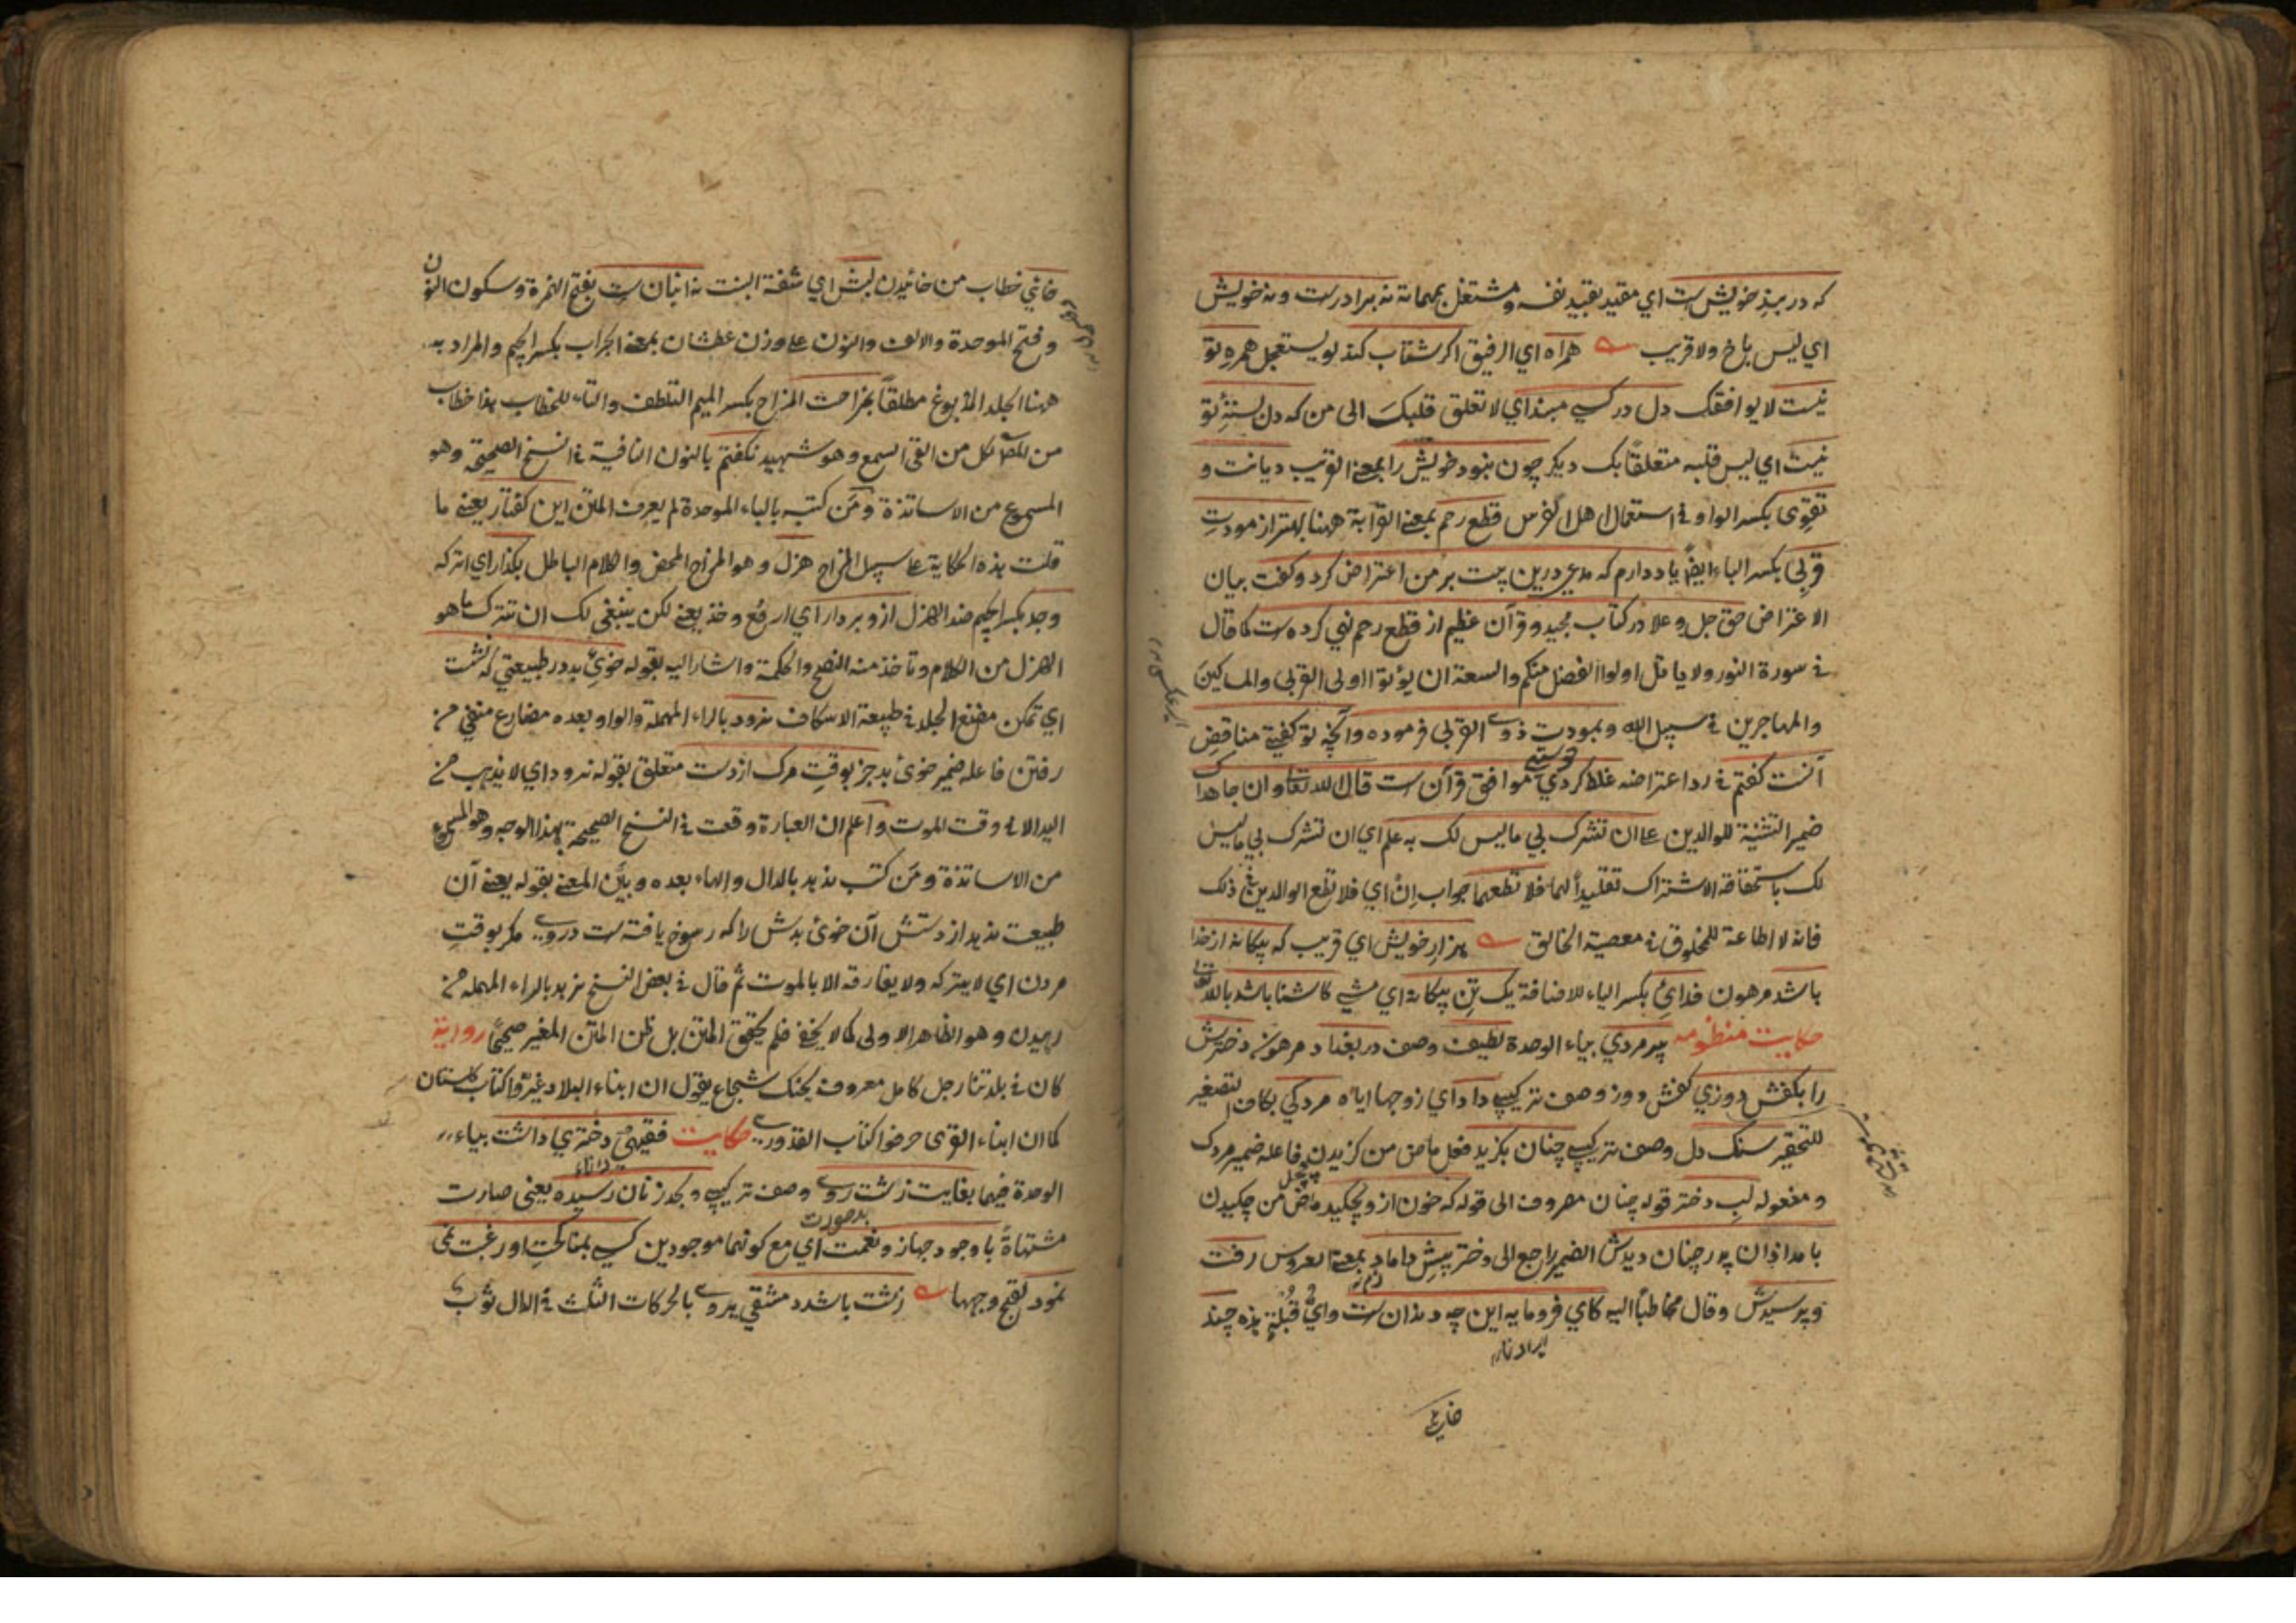 که در بند خویش ست اي مقید بقید نفسه و مشتغل بمهماته نه برادرست و نه خویش
اي لیس باخ ولا قریب همراه اي الرفیق اکر شتاب کند لو یستعجل همرهِ تو
نیست لا یوافقک دل در کسي مبند اي لا تعلق قلبکَ الی من که دل بستهٔ تو
نیست اي لیس قلبه متعلقاً بک دیکر چون نبود خویش را بمعنے القریب دیانت و
تقوِی بکسر الواو في استعمال اهل الفرس قطع رحم بمعنے القرابة ههنا بهتر از مودتِ
قربِی بکسر الباء ایضاً یاد دارم که مدعي درین بیت بر من اعتراض کرد و کفت بیان
الاعتراض حق جل و علا در کتاب مجید و قرآن عظیم از قطع رحم نهي کرده ست کما قال
في سورة النور ولا یاتل اولوا الفضل منکم والسعة ان یؤتوا اولی القربی والمساکینَ
والمهاجرین في سبیل الله و بمودت ذوي القربی فرموده و آنچه تو کفتی مناقض
آنست کفتم في رد اعتراضه غلط کردي موافق قرآن ست قال الله تعالی وان جاهداک
ضمیر التثنیة للوالدین علی ان تشرک بي ما لیس لک به علم اي ان تشرک بي ما لیس
لک باستحقاقه الاشتراک تقلیداً لهما فلا تطعهما جواب اِنْ اي فلا تطع الوالدین في ذلک
فانه لا اطاعة للمخلوق في معصیة الخالق هزار خویش اي قریب که بیکانه از خدا
باشد مرهون فدائِ بکسر الیاء للاضافة یک تن بیکانه اي شي کاشنا باشد بالله تعالی
حکایت منظومه پیر مردي بیاء الوحدة لطیف وصف در بغداد مرهون دخترش
را بکفش دوزي کفش دوز وصف ترکیبي داد اي زوجها ایاه مردکي بکاف التصغیر
للتحقیر سنک دل وصف ترکیبي چنان بکزید فعل ماض من کزیدن فاعله ضمیر مردک
و مفعوله لبِ دختر قوله چنان مصروف الی قوله که خون ازو بچکید ماض من چکیدن
بامدادان پدر چنان دیدش الضمیر راجع الی دختر پیشِ داماد بمعنے العروس رفت
و پرسیدش و قال مخاطباً الیه کاي فرومایه این چه دندان ست وايُّ قُبْلةٍ هذه چند
خائي خطاب من خائیدن لبش اي شفة البنت نه انبان ست بفتح الهمزة وسکون النون
و فتح الموحدة والالف والنون علی وزن عطشان بمعنے الجراب بکسر الجیم والمراد به
ههنا الجلد المدبوغ مطلقاً بمزاحت المزاح بکسر المیم التلطف والتاء للخطاب هذا خطاب
من لکل من القی السمع وهو شهید نکفتم بالنون النافیة في النسخ الصحیحة وهو
المسموع من الاساتذة ومَن کتبه بالباء الموحدة لم یعرف المتن این کفتار یعنے ما
قلت هذه الحکایة علی سبیل المزاح هزل وهو المزاح المحض والکلام الباطل بکذار اي اترکه
وجد بکسر الجیم ضد الهزل ازو بردار اي ارفع وخذ یعنے لکن ینبغی لک ان تترک ما هو
الهزل من الکلام وتأخذ منه النصح والحکمة واشار الیه بقوله خویِ بد در طبیعتي که نشست
اي تمکن مضغ الجلد في طبیعة الاسکاف نرود بالراء المهملة والواو بعده مضارع منفي من
رفتن فاعله ضمیر خوی بد جز بوقتِ مرک از دست متعلق بقوله نرود اي لا یذهب من
الید الا في وقت الموت واعلم ان العبارة وقعت في النسخ الصحیحة بهذا الوجه وهو المسموع
من الاساتذة ومَن کتب ندهد بالدال والهاء بعده وبیَّن المعنے بقوله یعنے آن
طبیعت ندهد از دستش آن خوی بدش را که رسوخ یافته ست دروي مکر بوقتِ
مردن اي لا یترکه ولا یفارقه الا بالموت ثم قال في بعض النسخ نرهد بالراء المهمله من
رهیدن وهو الظاهر الاولی کما لا یخفے فلم یحقق المتن بل ظن المتن المغیر صحیحاً روایة
کان في بلدتنا رجل کامل معروف بجنک شجاع یقول ان ابناء البلاد غیّروا کتاب کلستان
کما ان ابناء القری حرفوا کتاب القدوري حکایت فقیهي دختري داشت بیاء
الوحدة فیهما بغایت زشت روي وصف ترکیبي و بحد زنان رسیده یعنی صارت
بد صورت
مشتهاةً با وجود جهاز و نعمت اي مع کونهما موجودین کسي بمناکحتِ او رغبت نمی
نمود لقبح وجهها زشت باشد دمشقي بدوي بالحرکات الثلث في الدال ثوب